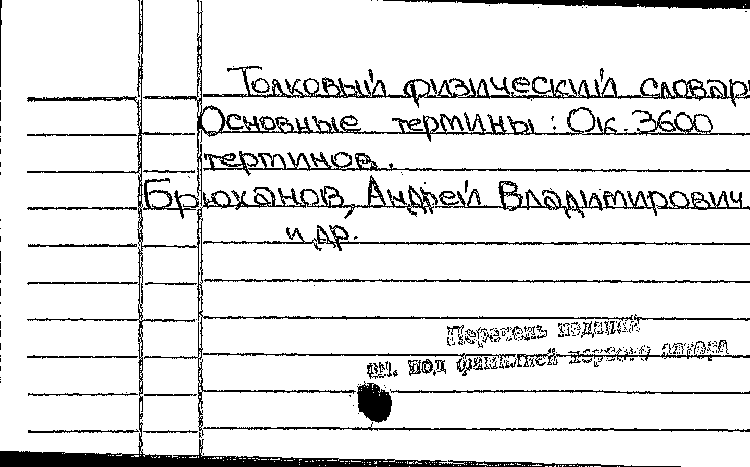 Толковый физический словарь
Основные термины: Ок. 3600
терминов.
Брюханов, Андрей Владимирович
и др.
Перечень изданий
см. под фамилией первого автора